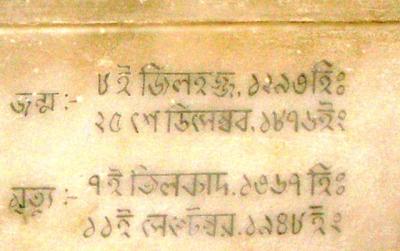 জন্ম :- ৮ ই জিলহজ্জ, ১২৯৩ হিঃ
২৫ শে ডিসেম্বর, ১৮৭৬ ইং
মৃত্যু :- ৭ ই জিলকাদ, ১৩৬৭ হিঃ
১১ ই সেপ্টেম্বর, ১৯৪৮ ইং